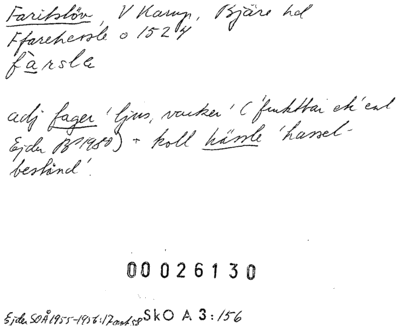 Faritslöv, V Karup, Bjäre hd
Ffarehessle o 1524
fàrsla
adj fager 'ljus, vacker' ('fruktbar ek' enl
Ejder 1980) + koll hässle 'hassel-
bestånd'.
00026130
Ejder SOÅ 1955-1956:17 SkO A 3:156